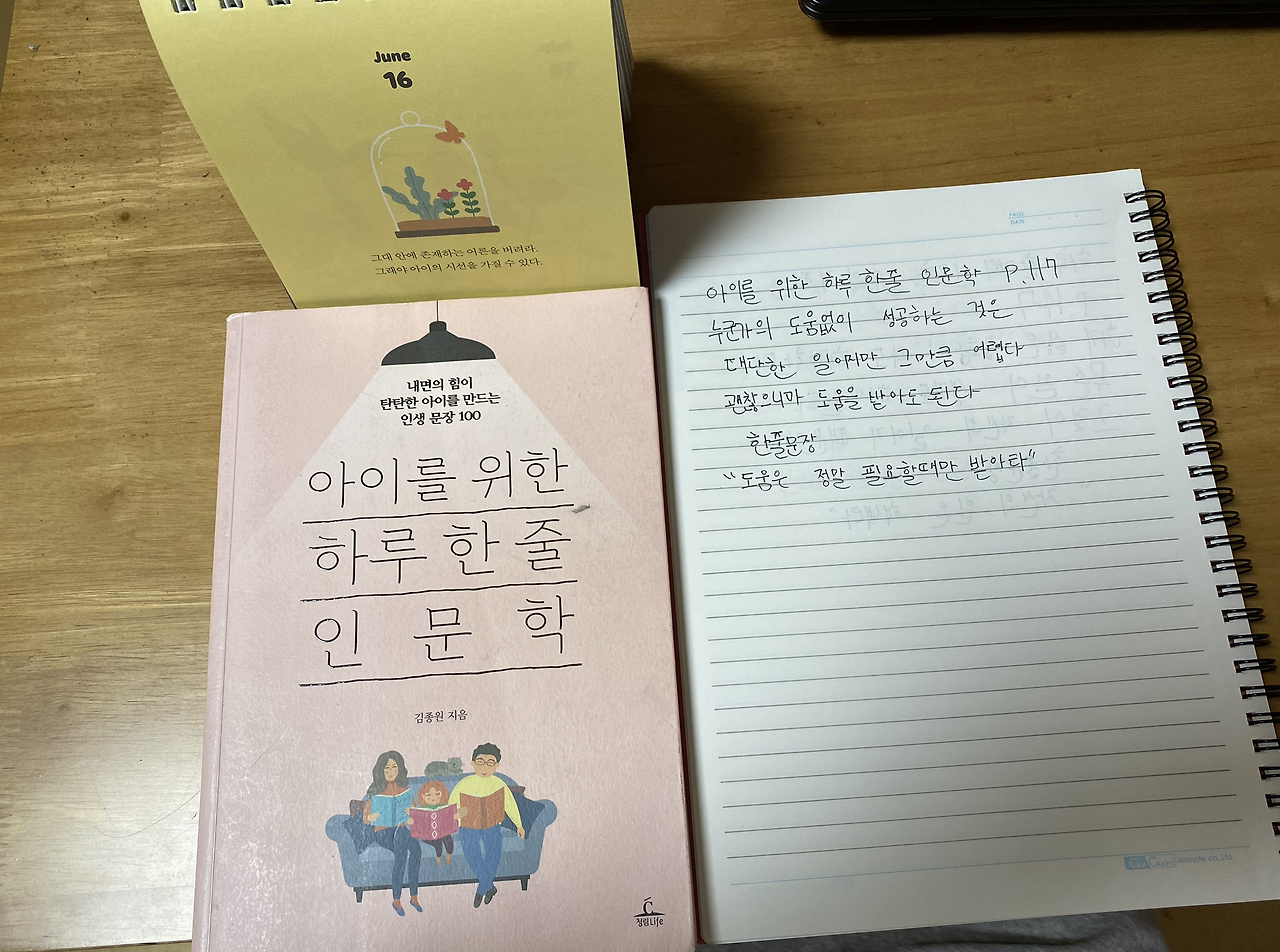 June
16
그대 안에 존재하는 어른을 버려라.
그래야 아이의 시선을 가질 수 있다.
내면의 힘이
탄탄한 아이를 만드는
인생 문장 100
아이를 위한
하루 한 줄
인문학
김종원 지음
청림Life
PAGE
DATE
아이를 위한 하루 한줄 인문학 P.117
누군가의 도움없이 성공하는 것은
대단한 일이지만 그만큼 어렵다
괜찮으니까 도움을 받아도 된다
한줄문장
"도움은 정말 필요할때만 받아라"
co.Ltd.